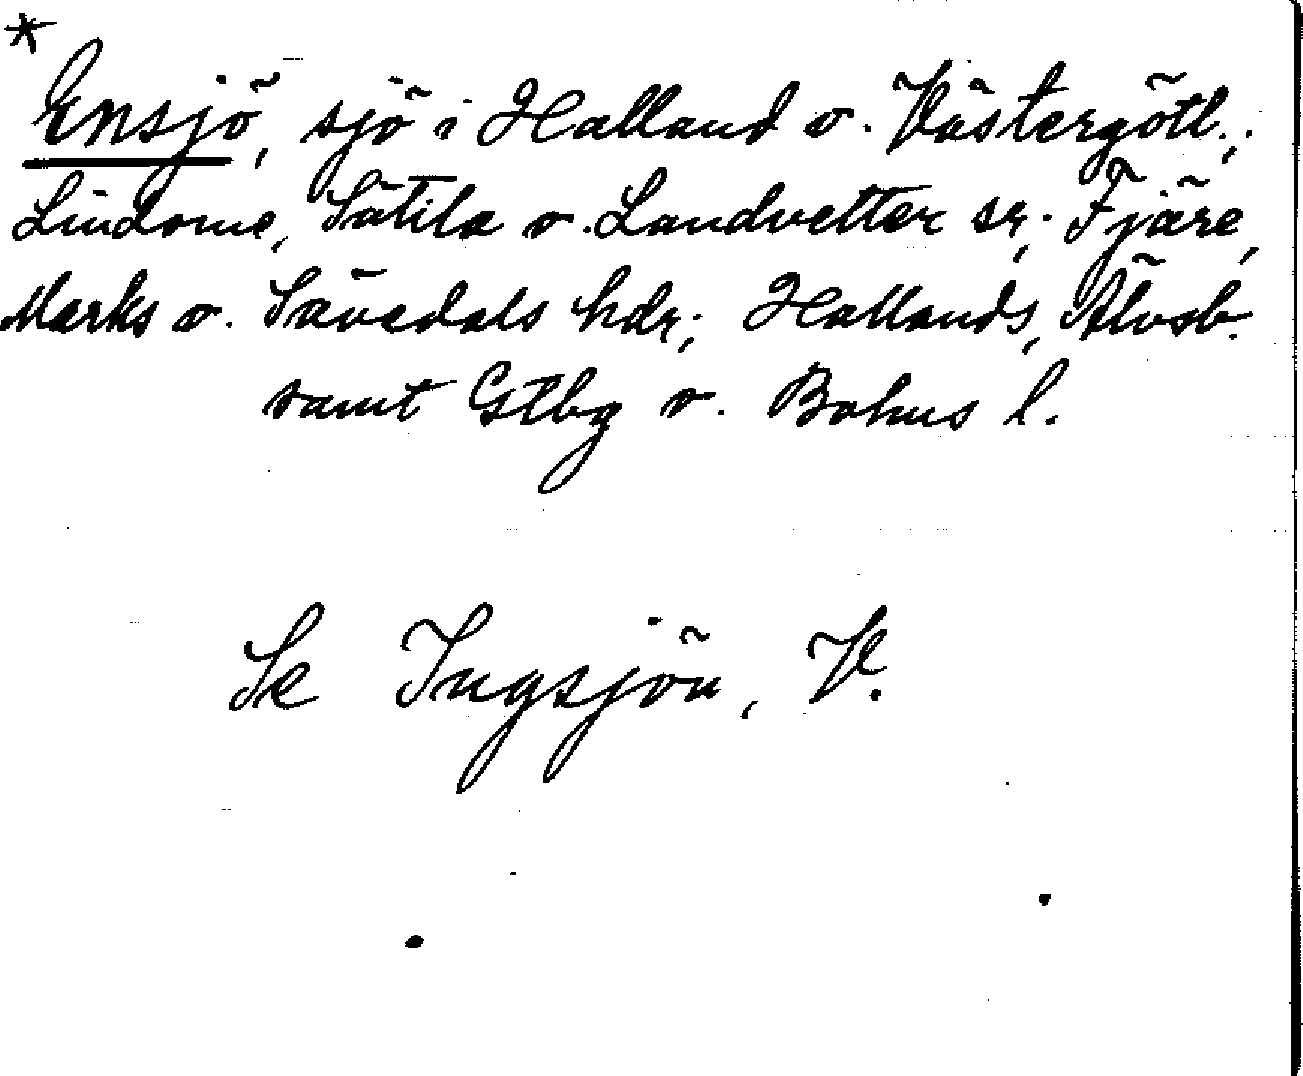 *
Ensjö, sjö i Halland o. Västergötl.;
Lindome, Sätila o. Landvetter sr; Fjäre,
Marks o. Sävedals hdr; Hallands, Älvsb.
samt Gtbg o. Bohus l.
Se Ingsjön, V.